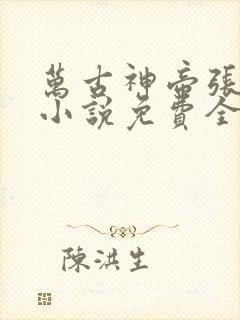 萬古神帝張
小說免費全
陳洪生